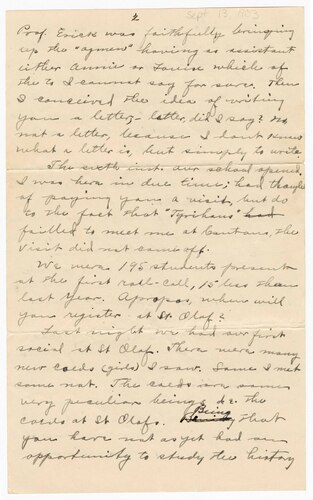 2
Sept 13, 1905
Prof. Erick was faithfully bringing
up the "agmen" having as assistant
either Annie or Louise which of
the to I cannot say for sure. Then
I conceived the idea of writing
you a letter,- letter did I say? No
not a letter, because I don't know
what a letter is, but simply to write.
The sixth inst. our school opened.
I was here in due time; had thought
of paying you a visit, but do
to the fact that "Tyrihans" had
failled to meet me at Cantons, the
visit did not come off.
We were 195 students present
at the first roll-call, 15 less than
last year. Apropos, when will
you register at St. Olaf?
Last night we had our first
social at St Olaf. There were many
new coeds (girls) I saw. Some I met
some not. The coeds are some
very peculiar beings, i.e. the
coeds at St Olafs. Being that
you have not as yet had an
opportunity to study the history